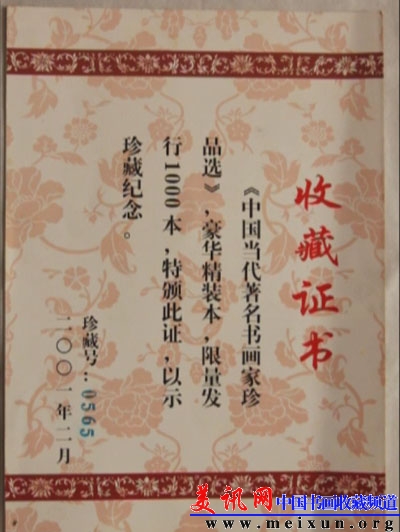 收藏证书
《中国当代著名书画家珍
品选》，豪华精装本，限量发
行1000本，特颁此证，以示
珍藏纪念。
珍藏号：0565
二〇〇一年二月
美讯网 中国书画收藏频道
www.meixun.org